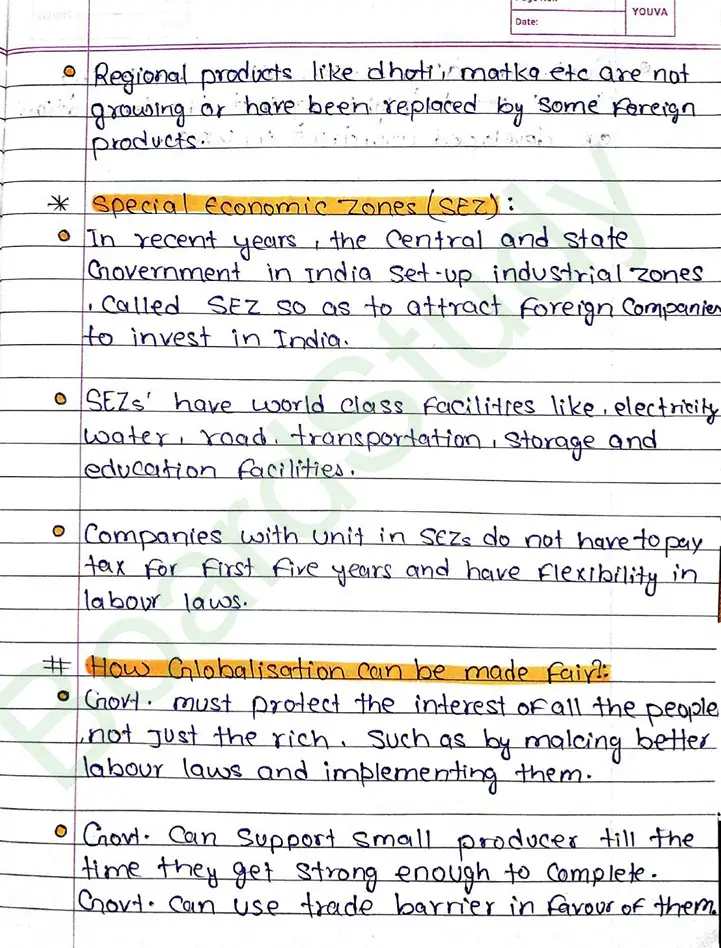 Date:
YOUVA
Regional products like dhoti, matka etc are not
growing or have been replaced by some foreign
products.
* Special Economic Zones (SEZ):
In recent years, the Central and State
Government in India set-up industrial zones
, called SEZ so as to attract foreign Companies
to invest in India.
SEZs' have world class facilities like, electricity
water, road, transportation, storage and
education facilities.
Companies with unit in SEZs do not have to pay
tax for first five years and have flexibility in
labour laws.
# How Globalisation can be made fair?:
Govt. must protect the interest of all the people
,not just the rich. Such as by making better
labour laws and implementing them.
Govt. Can support small producer till the
time they get strong enough to complete.
Govt. can use trade barrier in favour of them.
BoardStudy